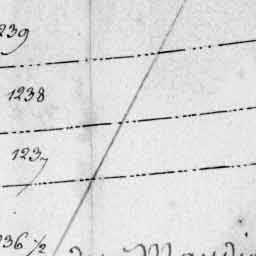 239
1238
1237
236 ½